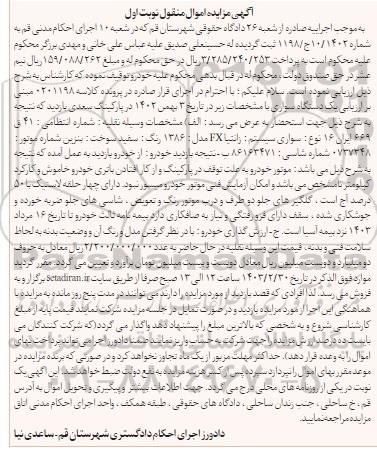 آگهی مزایده اموال منقول نوبت اول
به موجب اجراییه صادره از شعبه ۲۶ دادگاه حقوقی شهرستان قم که در شعبه ۱۰ اجرای احکام مدنی قم به
شماره ۱۴۰۲/ج۱۰/۱۱۹۸ ثبت گردیده له حسینعلی صدیق علیه عباس علی خانی و مهدی برزگر محکوم
علیه محکوم است به پرداخت ۳/۲۸۵/۲۴۰/۲۵۳ ریال در حق محکوم له و مبلغ ۱۵۹/۰۸۸/۲۶۲ ریال نیم
عشر در حق صندوق دولت، محکوم له در قبال بدهی محکوم علیه خودرو توقیف نموده که کارشناس به شرح
ذیل ارزیابی نموده است. سلام علیکم: با احترام در اجرای قرار صادره در پرونده کلاسه ۰۲۰۱۱۹۸ مبنی
بر ارزیابی یک دستگاه سواری با مشخصات زیر در تاریخ ۳ بهمن ۱۴۰۲ در پارکینگ سعدی بازدید که نتیجه
به شرح ذیل جهت استحضار به عرض می رسد: الف) مشخصات وسیله نقلیه: شماره انتظامی: ۴۱ ق
۶۶۹ ایران ۱۶ نوع: سواری سیستم: زانتیا FX مدل: ۱۳۸۶ رنگ: سفید سوخت: بنزین شماره موتور:
۰۷۳۷۳۴۸ شماره شاسی: ۸۶۱۶۳۴۷۱ ب - نتیجه بازدید خودرو: از خودرو بازدید به عمل آمده که نتیجه
به شرح ذیل می باشد: موتور خودرو به علت توقف در پارکینگ و از کار افتادن باتری خودرو خاموش و کارکرد
کیلومتر نامشخص می باشد و امکان آزمایش فنی موتور خودرو میسور نبود. دارای چهار حلقه لاستیک با ۵۰
درصد آج است. گلگیر های جلو دو طرف و درب موتور رنگ و تعویض، شاسی های جلو ضربه خورده و
جوشکاری شده، سقف دارای فرورفتگی و نیاز به صافکاری دارد بیمه نامه ثالث خودرو تا تاریخ ۱۶ مرداد
۱۴۰۳ نزد بیمه آسیا است. ج- ارزش گذاری خودرو: با در نظر گرفتن مدل و رنگ آن و وضعیت بدنه به لحاظ
سلامت فنی و بدنه، قیمت این وسیله نقلیه در حال حاضر به عدد ۲/۲۰۰/۰۰۰/۰۰۰ ریال معادل به حروف
دو میلیارد و دویست میلیون ریال معادل دویست و بیست میلیون تومان برآورد و تعیین می گردد. مقرر گردید
موارد فوق الذکر در تاریخ ۱۴۰۳/۲/۳۰ ساعت ۱۲ الی ۱۳ صبح صرفا از طریق سایت setadiran.ir برگزار و به
فروش می رسد. لذا افرادی که قصد بازدید از مورد مزایده را دارند می توانند در مدت پنج روز مانده به مزایده با
هماهنگی این اجرا از مورد مزایده بازدید و در صورت تمایل در جلسه مزایده شرکت نمایند قیمت پایه از مبلغ
کارشناسی شروع و به شخصی که بالاترین مبلغ را پیشنهاد دهد واگذار می گردد (که شرکت کنندگان می
بایست ده درصد ارزش مزایده را جهت شرکت به حساب واریز نمایند) ضمنا دادورز اجرا می تواند پرداخت بهای
اموال را به وعده قرار دهد). حداکثر مهلت مزبور از یک ماه تجاوز نخواهد کرد و در صورتی که برنده مزایده در
موعد مقرر بهای اموال را نپردازد سپرده پس از کسر هزینه مزایده به نفع دولت ضبط خواهد شد. این آگهی یک
نوبت در یکی از روزنامه های محلی درج می گردد. جهت اطلاعات بیشتر و پیگیری و تحویل اموال به آدرس
قم، خ ساحلی، جنب زندان ساحلی، دادگاه های حقوقی، طبقه همکف، واحد اجرای احکام مدنی اتاق
مزایده مراجعه نمایید.
دادورز اجرای احکام دادگستری شهرستان قم - ساعدی نیا